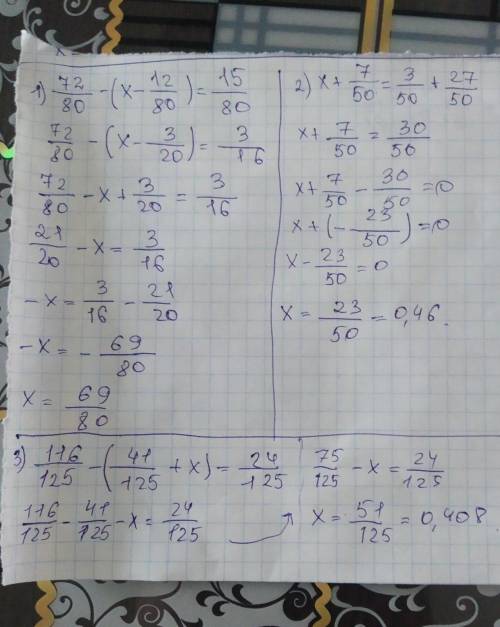 x =
1) 72/80 - (x - 12/80) = 15/80
72/80 - (x - 3/20) = 3/16
72/80 - x + 3/20 = 3/16
21/20 - x = 3/16
-x = 3/16 - 21/20
-x = - 69/80
x = 69/80
2) x + 7/50 = 3/50 + 27/50
x + 7/50 = 30/50
x + 7/50 - 30/50 = 0
x + (- 23/50) = 0
x - 23/50 = 0
x = 23/50 = 0,46.
3) 116/125 - (41/125 + x) = 24/125
116/125 - 41/125 - x = 24/125
75/125 - x = 24/125
x = 51/125 = 0,408